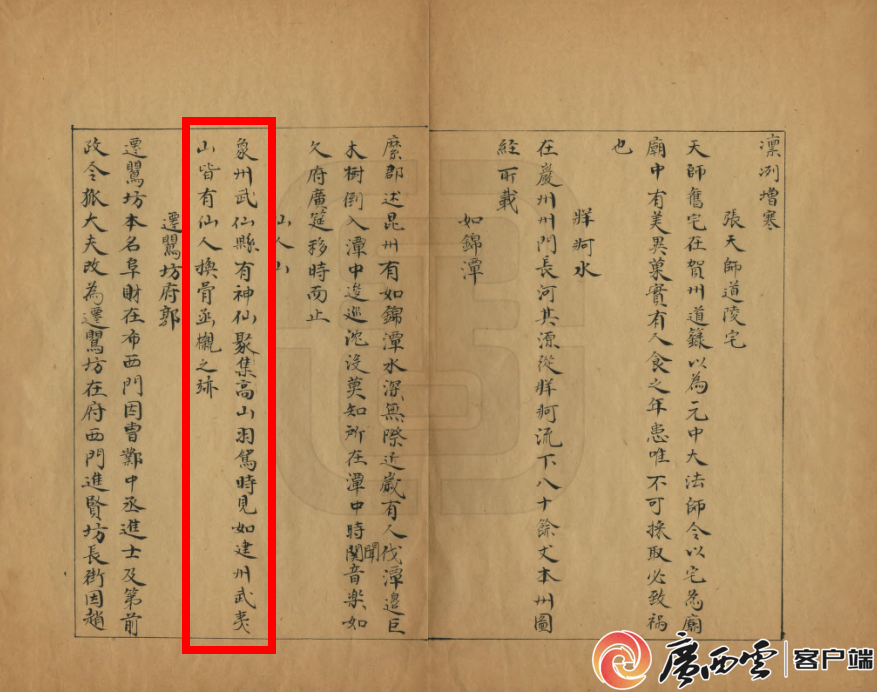 凛冽增寒
張天師道陵宅
天師舊宅在賀州道録以為元中大法師今以宅為廟
廟中有美異菓實有人食之年患唯不可採取必致禍
也
牂牁水
在嚴州州門長河其源從牂牁流下八十餘丈本州圖
經所載
如錦潭
縻郡述昆州有如錦潭水深無際近歲有人伐潭邉巨
木樹倒入潭中逡巡沈沒莫知所在潭中時聞音楽如
久府廣筵移時而止
仙人山
象州武仙縣有神仙聚集高山羽駕時見如建州武夷
山皆有仙人換骨函櫬之跡
遷鸎坊府郭
遷鸎坊本名阜財在市西門因曹鄴中丞進士及第前
政令狐大夫改為遷鸎坊在府西門進賢坊長街因趙
廣西雲
客户端